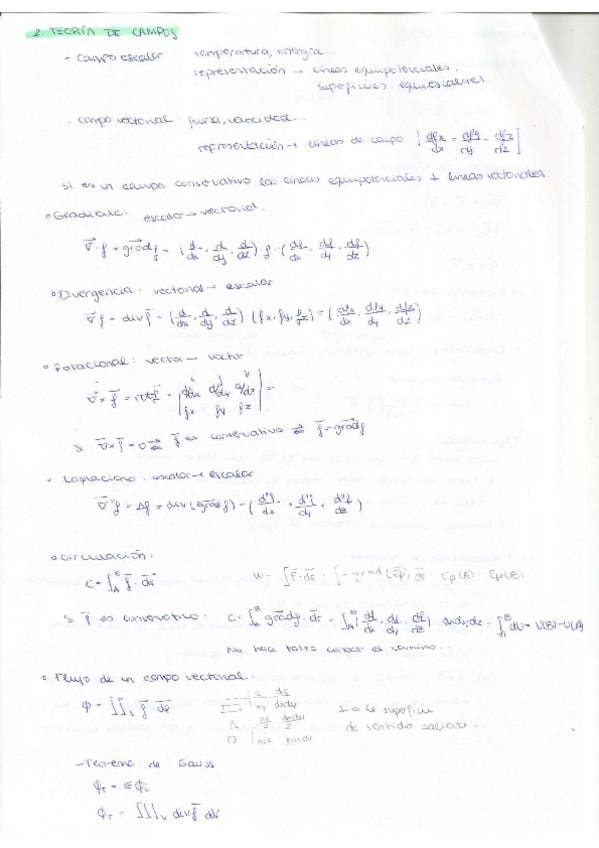 2. TEORÍA DE CAMPOS
- Campo escalar temperatura, energía...
representación → líneas equipotenciales.
superficies equiescalares.
- campo vectorial: fuerza, velocidad...
representación → líneas de campo [dfx/dx = dfy/dy = dfz/dz]
Si es un campo conservativo las líneas equipotenciales ⊥ líneas vectoriales.
• Gradiente: escalar → vectorial.
∇·f = grad f = (d/dx, d/dy, d/dz) f = (df/dx, df/dy, df/dz)
• Divergencia: vectorial → escalar
∇f = div f = (d/dx, d/dy, d/dz) (fx, fy, fz) = (dfx/dx, dfy/dy, dfz/dz)
• Rotacional: vector → vector
∇ × f = rot f = | d/dx d/dy d/dz
fx fy fz | =
∇ × f = 0 ⇄ f es conservativo ⇄ f = grad f
• Laplaciano: escalar → escalar
∇²f = Δf = div (grad f) = (d²f/dx + d²f/dy + d²f/dz)
• Circulación:
C = ∫_A^B f · dr W = ∫ F · dr = ∫ - grad (Ep) dr Ep(A) - Ep(B)
Si f es conservativo: C = ∫_A^B grad f · dr = ∫_A^B (df/dx, df/dy, df/dz) dx dy dz = ∫_A^B dU = U(B) - U(A)
No hace falta conocer el camino.
• Flujo de un campo vectorial:
Φ = ∫∫_s f · ds ⊥ a la superficie
de sentido saliente.
- Teorema de Gauss
Φ_T = ΣΦi
Φ_T = ∫∫∫_V div f dV